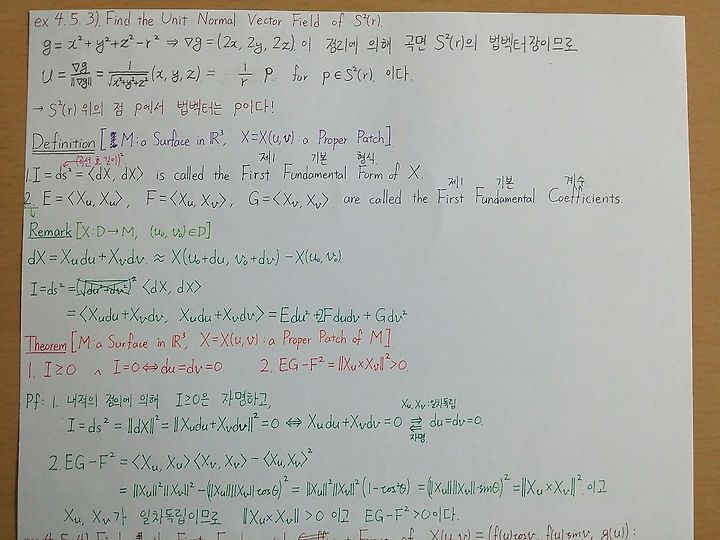 ex 4.5.3). Find the Unit Normal Vector Field of S²(r).
g = x²+y²+z²-r² ⇒ ∇g = (2x, 2y, 2z)이 정리에 의해 곡면 S²(r)의 법벡터장이므로
U = ∇g/‖∇g‖ = 1/√(x²+y²+z²) (x, y, z) = 1/r p. for p∈S²(r). 이다.
→ S²(r) 위의 점 p에서 법벡터는 p이다!
Definition [M: a Surface in ℝ³, X=X(u,v): a Proper Patch]
(곡선 호 길이)² 제1 기본 형식.
1. I = ds² = ⟨dX, dX⟩ is called the First Fundamental Form of X.
제1 기본 계수
2. E = ⟨Xu, Xu⟩, F = ⟨Xu, Xv⟩, G = ⟨Xv, Xv⟩ are called the First Fundamental Coefficients.
Remark [X: D→M, (u₀, v₀)∈D]
dX = Xudu + Xvdv ≈ X(u₀+du, v₀+dv) - X(u₀, v₀)
I = ds² = (√(du²+dv²))² ⟨dX, dX⟩
= ⟨Xudu+Xvdv, Xudu+Xvdv⟩ = Edu² + 2Fdudv + Gdv²
Theorem [M: a Surface in ℝ³, X=X(u,v): a Proper Patch of M].
1. I≥0 ∧ I=0 ⇔ du=dv=0. 2. EG-F² = ‖Xu×Xv‖² > 0.
Pf: 1. 내적의 정의에 의해 I≥0은 자명하고,
Xu, Xv: 일차독립
I = ds² = ‖dX‖² = ‖Xudu+Xvdv‖² = 0 ⇔ Xudu+Xvdv = 0 ⇄ du=dv=0.
자명.
2. EG-F² = ⟨Xu, Xu⟩⟨Xv, Xv⟩ - ⟨Xu, Xv⟩²
= ‖Xu‖²‖Xv‖² - (‖Xu‖‖Xv‖cosθ)² = ‖Xu‖²‖Xv‖²(1-cos²θ) = (‖Xu‖‖Xv‖sinθ)² = ‖Xu×Xv‖² 이고
Xu, Xv가 일차독립이므로 ‖Xu×Xv‖ > 0 이고 EG-F² > 0이다.
ex 4.5.4) Find the First Fundamental Form of X(u,v) = (f(u)cosv, f(u)sinv, g(u)):